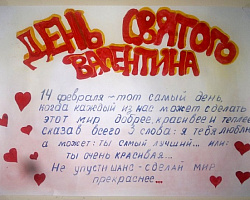 ДЕНЬ СВЯТОГО
ВАЛЕНТИНА
14 февраля – тот самый день,
когда каждый из нас может сделать
этот мир добрее, красивее и теплее,
сказав всего 3 слова: я тебя люблю,
а может: ты самый лучший... или:
ты очень красивая...
Не упусти шанс – сделай мир
прекраснее...